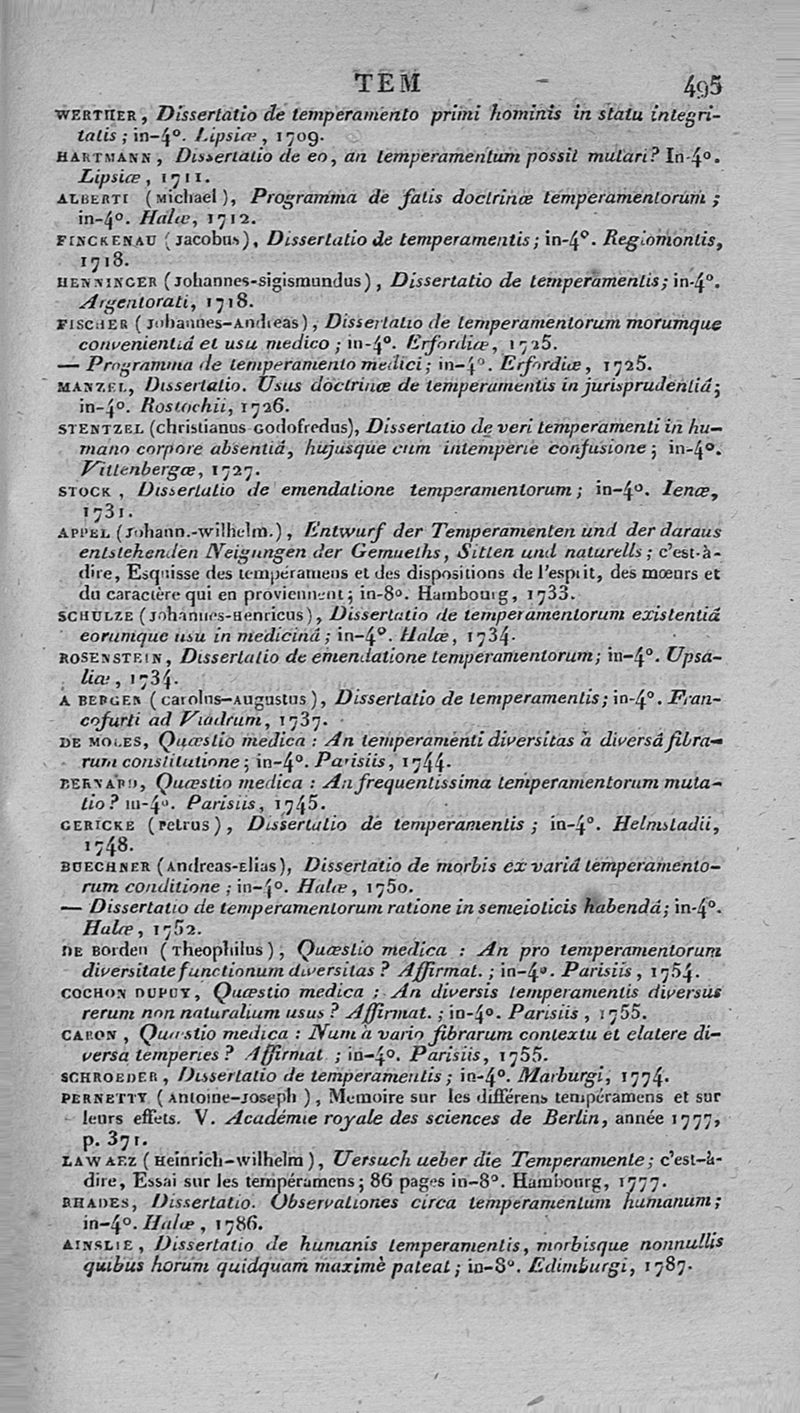 TEM 495
WERTHER, Dissertatio de temperamento primi hominis in statu integri-
tatis; in-4°. Lipsiæ, 1709.
HARTMANN, Dissertatio de eo, an temperamentum possit mutari? In-4°.
Lipsiæ, 1711.
ALBERTI (Michael), Programma de fatis doctrinæ temperamentorum;
in-4°. Halæ, 1712.
FINCKENAU (Jacobus), Dissertatio de temperamentis; in-4°. Regiomontis,
1718.
HENNINGER (Johannes-Sigismundus), Dissertatio de temperamentis; in-4°.
Argentorati, 1718.
FISCHER (Johannes-Andreas), Dissertatio de temperamentorum morumque
convenientiâ et usu medico; in-4°. Erfordiæ, 1725.
— Programma de temperamento medici; in-4°. Erfordiæ, 1725.
MANZEL, Dissertatio. Usus doctrinæ de temperamentis in jurisprudentiâ;
in-4°. Rostochii, 1726.
STENTZEL (Christianus Godofredus), Dissertatio de veri temperamenti in hu-
mano corpore absentiâ, hujusque cum intemperie confusione; in-4°.
Vittenbergæ, 1727.
STOCK, Dissertatio de emendatione temperamentorum; in-4°. Ienæ,
1731.
APPEL (Johann.-Wilhelm.), Entwurf der Temperamenten und der daraus
entstehenden Neigungen der Gemueths, Sitten und naturells; c'est-à-
dire, Esquisse des tempéramens et des dispositions de l'esprit, des mœurs et
du caractère qui en proviennent; in-8°. Hambourg, 1733.
SCHULZE (Johannes-Henricus), Dissertatio de temperamentorum existentiâ
eorumque usu in medicinâ; in-4°. Halæ, 1734.
ROSENSTEIN, Dissertatio de emendatione temperamentorum; in-4°. Upsa-
liæ, 1734.
A BERGEN (Carolus-Augustus), Dissertatio de temperamentis; in-4°. Fran-
cofurti ad Viadrum, 1737.
DE MOLES, Quæstio medica : An temperamenti diversitas à diversâ fibra-
rum constitutione; in-4°. Parisiis, 1744.
BERNARD, Quæstio medica : An frequentissima temperamentorum muta-
tio? in-4°. Parisiis, 1745.
GERICKE (Petrus), Dissertatio de temperamentis; in-4°. Helmstadii,
1748.
BUECHNER (Andreas-Elias), Dissertatio de morbis ex variâ temperamento-
rum conditione; in-4°. Halæ, 1750.
— Dissertatio de temperamentorum ratione in semeioticis habendâ; in-4°.
Halæ, 1752.
DE Borden (Theophilus), Quæstio medica : An pro temperamentorum
diversitate functionum diversitas? Affirmat.; in-4°. Parisiis, 1754.
COCHON DUPUY, Quæstio medica : An diversis temperamentis diversus
rerum non naturalium usus? Affirmat.; in-4°. Parisiis, 1755.
CARON, Quæstio medica : Num à vario fibrarum contextu et elatere di-
versa temperies? Affirmat.; in-4°. Parisiis, 1755.
SCHROEDER, Dissertatio de temperamentis; in-4°. Marburgi, 1774.
PERNETTY (Antoine-Joseph), Memoire sur les différens tempéramens et sur
leurs effets. V. Académie royale des sciences de Berlin, année 1777,
p. 371.
LAWAEZ (Heinrich-Wilhelm), Versuch ueber die Temperamente; c'est-à-
dire, Essai sur les tempéramens; 86 pages in-8°. Hambourg, 1777.
RHADES, Dissertatio. Observationes circa temperamentum humanum;
in-4°. Halæ, 1786.
AINSLIE, Dissertatio de humanis temperamentis, morbisque nonnullis
quibus horum quidquam maximè pateat; in-8°. Edimburgi, 1787.